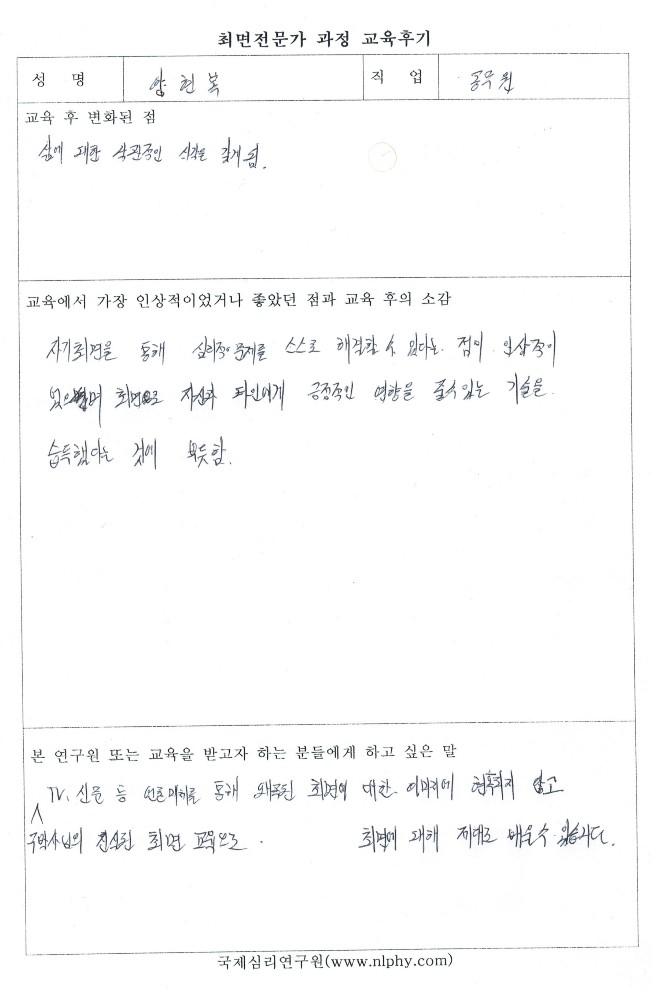 최면전문가 과정 교육후기
성 명 양현복 직 업 공무원
교육 후 변화된 점
삶에 대한 낙관적인 시각을 갖게 됨.
교육에서 가장 인상적이었거나 좋았던 점과 교육 후의 소감
자기최면을 통해 심리적 문제를 스스로 해결할 수 있다는 점이 인상적이
었으며 최면으로 자신과 타인에게 긍정적인 영향을 줄 수 있는 기술을
습득했다는 것에 뿌듯함.
본 연구원 또는 교육을 받고자 하는 분들에게 하고 싶은 말
TV, 신문 등 언론매체를 통해 왜곡된 최면에 대한 이미지에 현혹되지 않고
박사님의 진실된 최면 교육으로 최면에 대해 제대로 배울 수 있습니다.
국제심리연구원(www.nlphy.com)